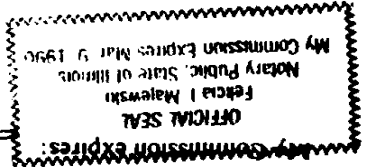 My Commission expires:
OFFICIAL SEAL
Felicia I Majewski
Notary Public, State of Illinois
My Commission Expires Mar 9 1996